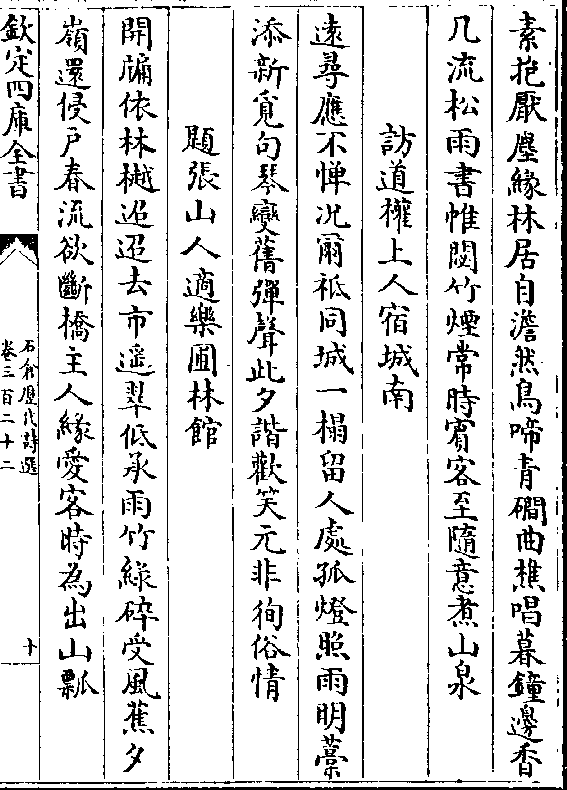 素抱厭塵緣林居自澹然鳥啼青磵曲樵唱暮鐘邊香
几流松雨書帷閟竹煙常時賓客至隨意煮山泉
訪道權上人宿城南
遠尋應不憚况爾祗同城一榻留人處孤燈照雨明藁
添新覓句琴變舊彈聲此夕諧歡笑元非徇俗情
題張山人適樂圃林館
開牖依林樾迢迢去市遥翠低承雨竹綠碎受風蕉夕
嶺還侵戶春流欲斷橋主人緣愛客時為出山瓢
欽定四庫全書
石倉歷代詩選
卷三百二十二
十